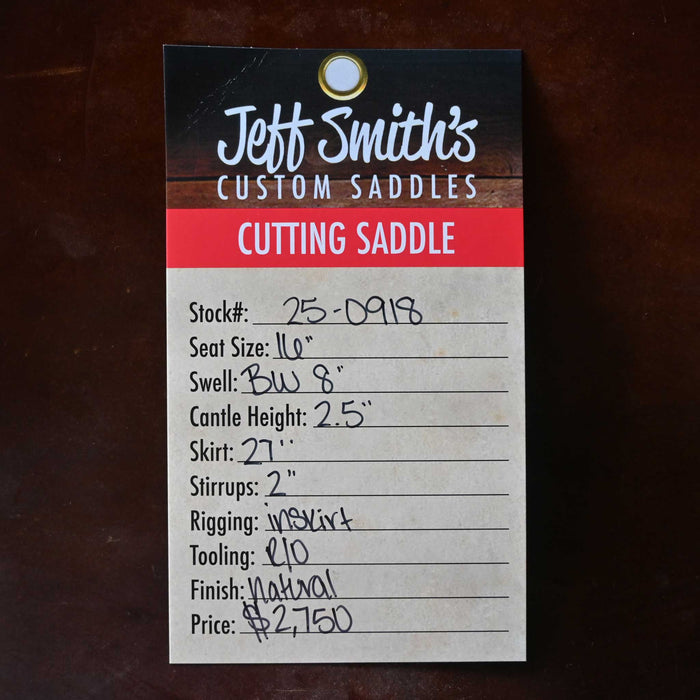 Jeff Smith's
CUSTOM SADDLES
CUTTING SADDLE
Stock#: 25-0918
Seat Size: 16"
Swell: BW 8"
Cantle Height: 2.5"
Skirt: 27"
Stirrups: 2"
Rigging: inskirt
Tooling: R/O
Finish: natural
Price: $2,750